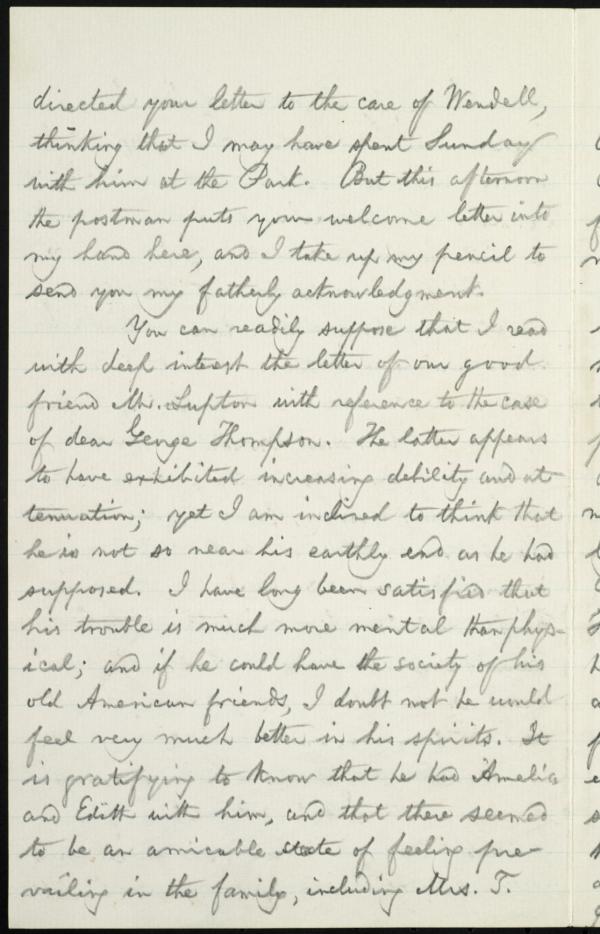 directed your letter to the care of Wendell,
thinking that I may have spent Sunday
with him at the Park. But this afternoon
the postman puts your welcome letter into
my hand here, and I take up my pencil to
send you my fatherly acknowledgment.
You can readily suppose that I read
with deep interest the letter of our good
friend Mr. Lupton with reference to the case
of dear George Thompson. The latter appears
to have exhibited increasing debility and at-
tenuation; yet I am inclined to think that
he is not so near his earthly end as he had
supposed. I have long been satisfied that
his trouble is much more mental than phys-
ical; and if he could have the society of his
old American friends, I doubt not he would
feel very much better in his spirits. It
is gratifying to know that he had Amelia
and Edith with him, and that there seemed
to be an amicable state of feeling pre-
vailing in the family, including Mrs. T.